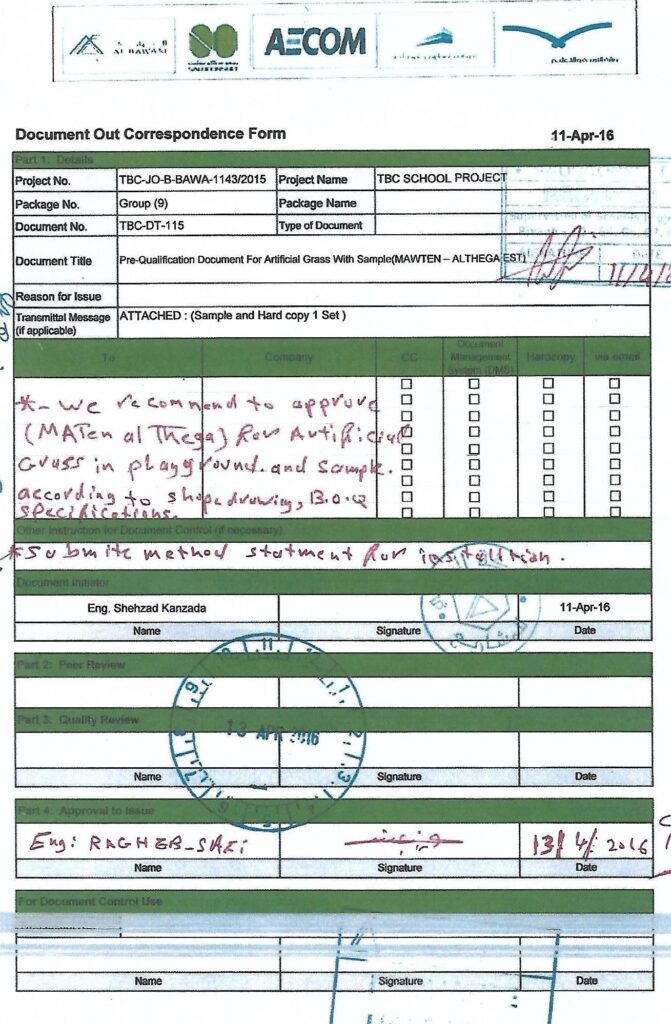 AL BAWANI
AECOM
Document Out Correspondence Form
11-Apr-16
Part 1: Details
Project No. TBC-JO-B-BAWA-1143/2015 Project Name TBC SCHOOL PROJECT
Package No. Group (9) Package Name
Document No. TBC-DT-115 Type of Document
Document Title Pre-Qualification Document For Artificial Grass With Sample(MAWTEN – ALTHEGA EST)
11/4/
Reason for Issue
Transmittal Message (if applicable) ATTACHED : (Sample and Hard copy 1 Set )
To Company CC Document Management System (DMS) Hardcopy via email
*- We recommend to approve
(MATen al Thega) For Autificial
Grass in playground.and sample.
according to shopedrawing, B.O.Q
specifications.
Other Instruction for Document Control (if necessary)
*Submite method statment for installtian.
Document Initiator
Eng. Shehzad Kanzada 11-Apr-16
Name Signature Date
Part 2: Peer Review
Part 3: Quality Review
13 APR 2016
Name Signature Date
Part 4: Approval to Issue
Eng: RAGHEB-SAKi 13/4/2016
Name Signature Date
For Document Control Use
Name Signature Date